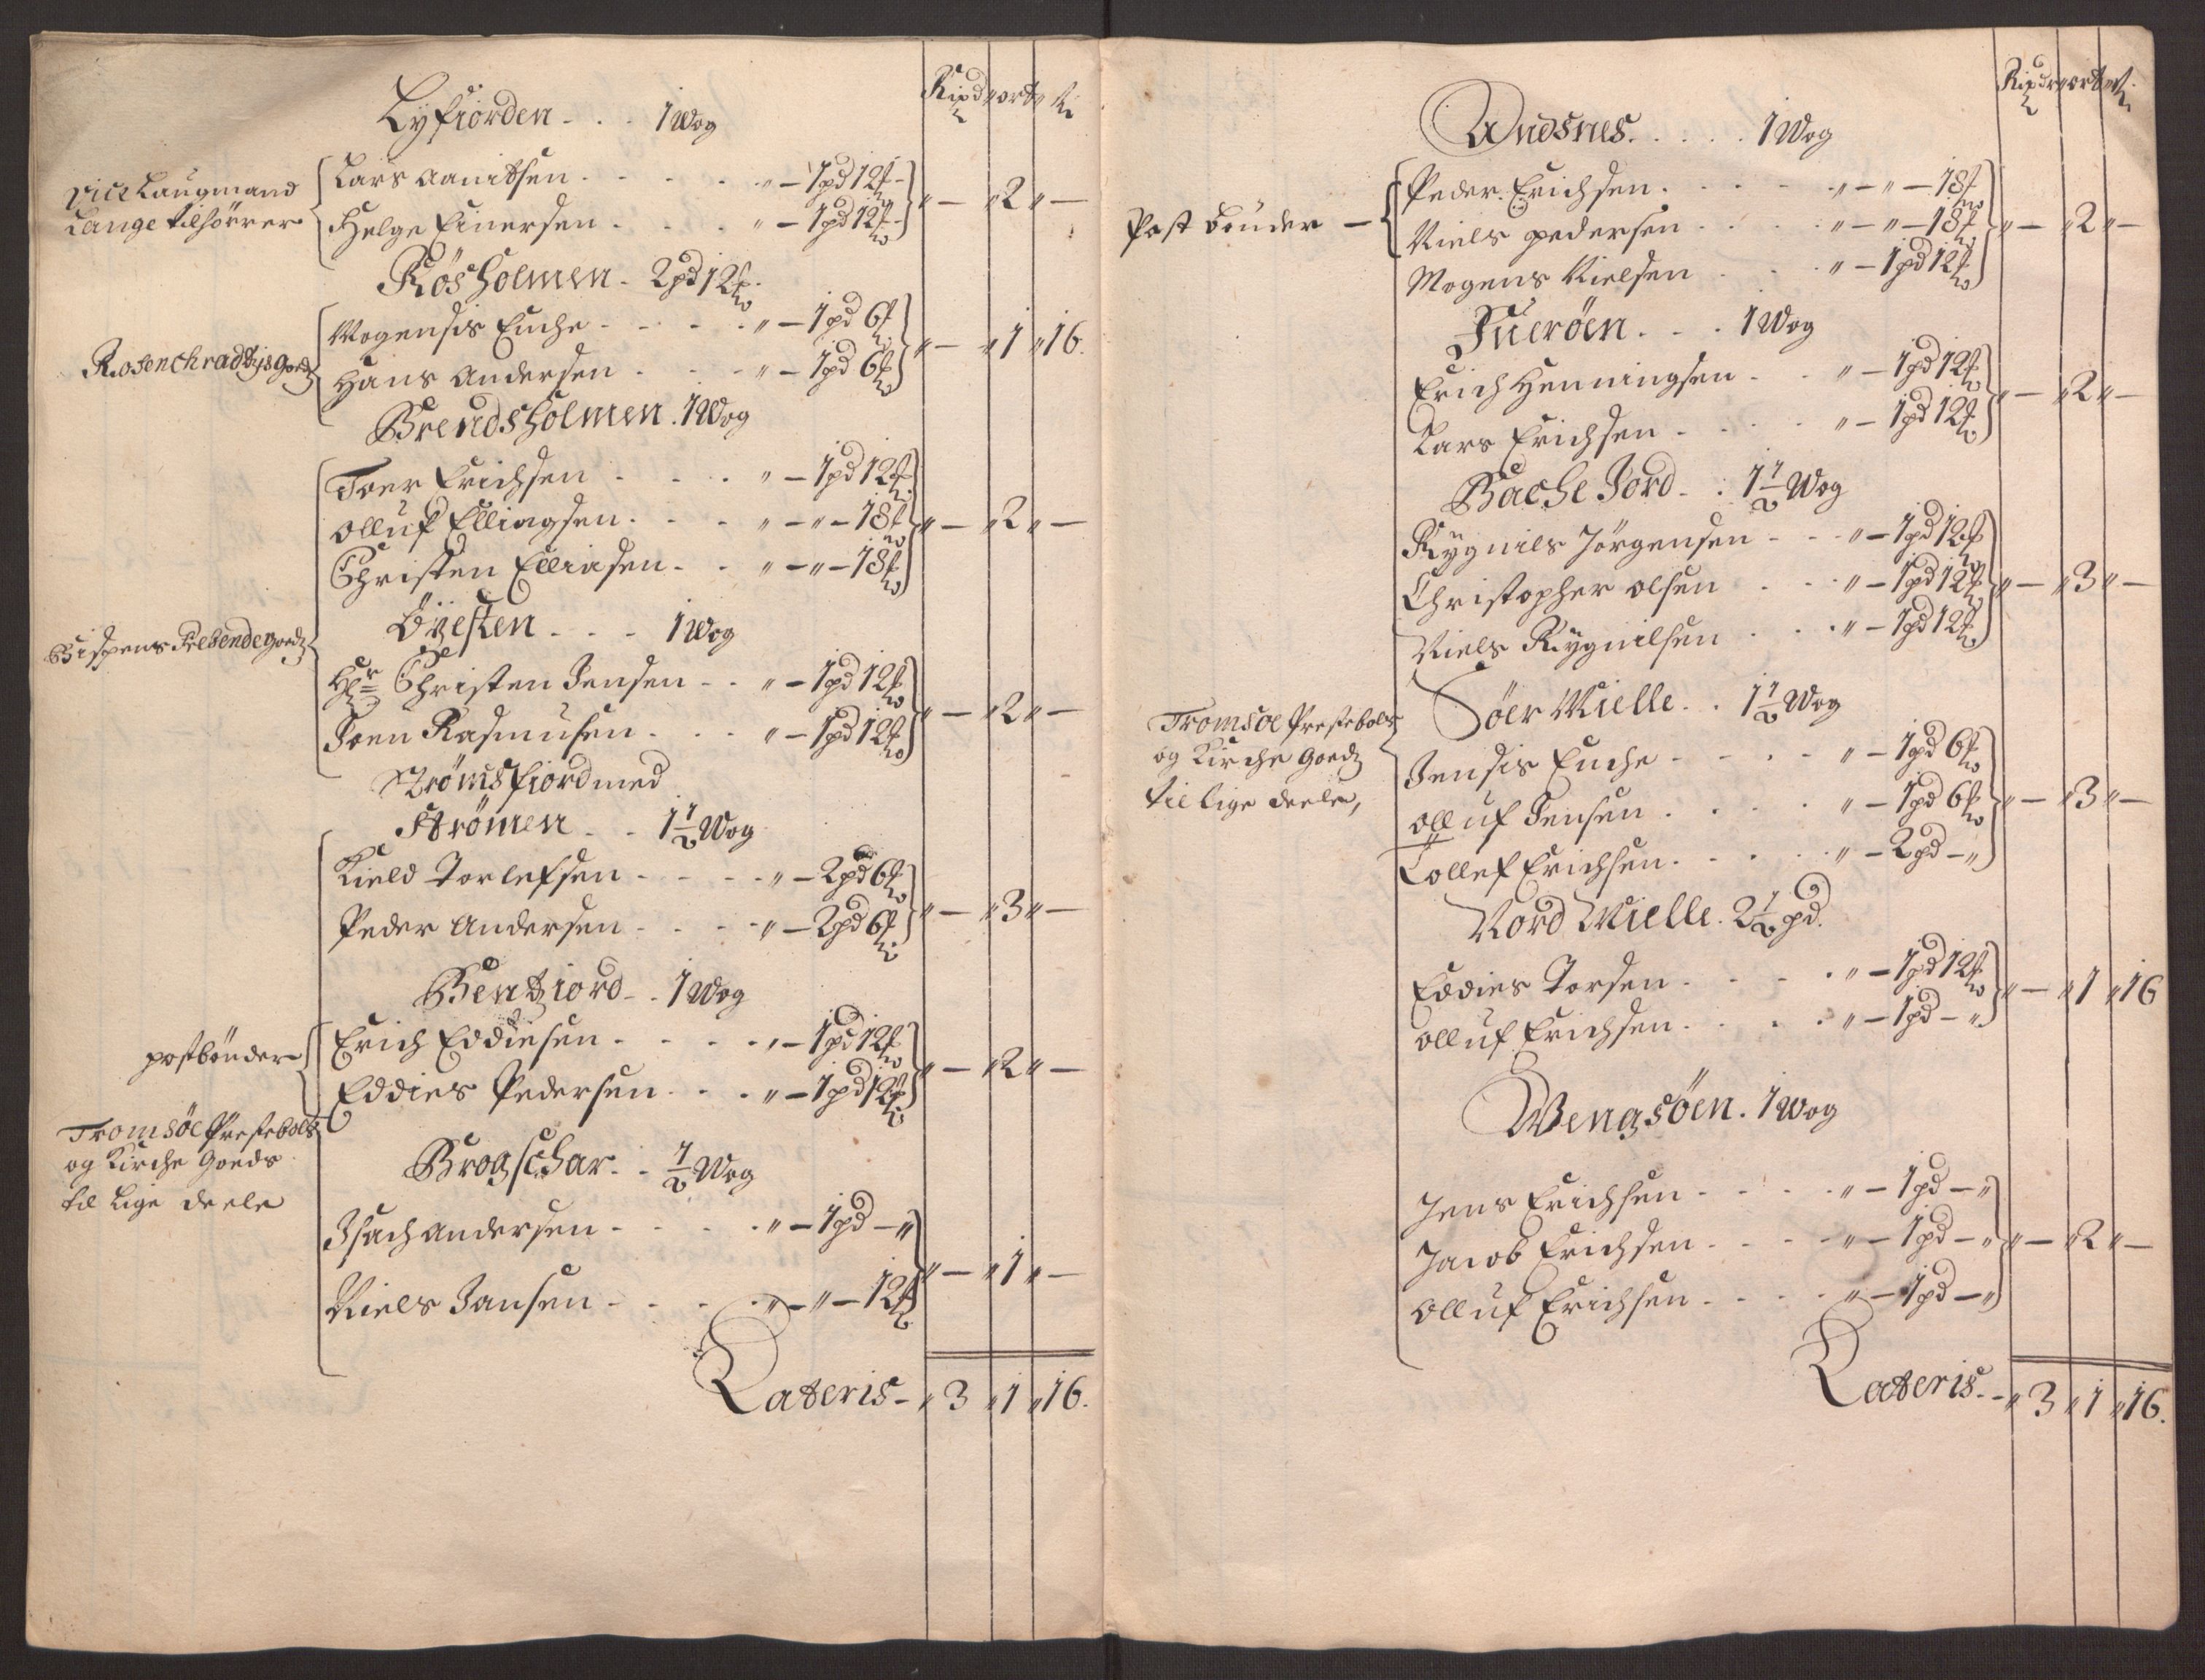 Ripdr ort ß
Lyfiorden - . . 1 Wog
Vice Laugmand
Lange tilhörrer
Lars Aanitsen . - . . „ – 1 pd 12 ℔ –
Helge Einersen . . . . „ – 1 pd 12 ℔ – „ – „ 2 „ –
Rösholmen - 2 pd 12 ℔.
Rosenchradtzis Goedz
Mogensis Enche - - - - . „ – 1 pd 6 ℔
Hans Andersen . . . „ – 1 pd 6 ℔ „ – „ 1 „ 16.
Brendsholmen . 1 Wog
Toer Erichsen . . . „ – 1 pd 12 ℔
Olluf Ellingsen . . . „ – „ – 18 ℔ „ – „ 2 „ –
Christen Elliasen . . „ – „ – 18 ℔
Bispens Prebende Goedz
Öÿesten . . . 1 Wog
Hr: Christen Jensen . . „ – 1 pd 12 ℔
Joen Rasmusen . . . „ – 1 pd 12 ℔ „ – „ 2 „ –
Strömsfiord med
Strömen . . 1 1/2 Wog
Kield Torlefsen - - - . „ – 2 pd 6 ℔
Peder Andersen . . . . „ – 2 pd 6 ℔ „ – „ 3 „ –
Bentziord - . 1 Wog
postbönder
Erich Eddiesen . . . . „ – 1 pd 12 ℔
Eddies Pedersen . . . „ – 1 pd 12 ℔ „ – „ 2 „ –
Tromsöe Prestebols
og Kirche Goeds
til Lige deele
Brogschar . . 1/2 Wog
Isach Andersen . . . . „ – 1 pd – „
Niels Jansen . . . . „ – „ – 12 ℔ „ – „ 1 „ –
Lateris – „ 3 „ 1 „ 16.
Ripdr ort ß
Andsnes . . . . . 1 Wog
Post bönder –
Peder Erichsen . . . . „ – „ – 18 ℔
Niels pedersen . . . . „ – „ – 18 ℔ „ – „ 2 „ –
Mogens Nielsen . . . „ – 1 pd 12 ℔
Tueröen . . . 1 Wog
Erich Henningsen . . „ – 1 pd 12 ℔
Lars Erichsen . . . . „ – 1 pd 12 ℔ „ – „ 2 „ –
Bache Jord - . 1 1/2 Wog
Rÿgnils Jörgensen - - . „ – 1 pd 12 ℔
Christopher Olsen . . . „ – 1 pd 12 ℔ „ – „ 3 „ –
Niels Rÿgnilsen . . . „ – 1 pd 12 ℔
Tromsöe Prestebols
og Kirche Goedz
til lige deele,
Söer Mielle . . 1 1/2 Wog
Jensis Enche - - . . „ – 1 pd 6 ℔
Olluf Jensen . . . . „ – 1 pd 6 ℔ „ – „ 3 „ –
Tollef Erichsen . . . . „ – 2 pd – „
Nord Mielle . 2 1/2 pd.
Eddies Torsen . . . . „ – 1 pd 12 ℔
Olluf Erichsen . . . . „ – 1 pd – „ „ – „ 1 „ 16
Wengsöen . 1 Wog
Jens Erichsen - - . . „ – 1 pd – „
Jacob Erichsen . . . . „ – 1 pd – „ „ – „ 2 „ –
Olluf Erichsen . . . . „ – 1 pd – „
Lateris - „ 3 „ 1 „ 16.